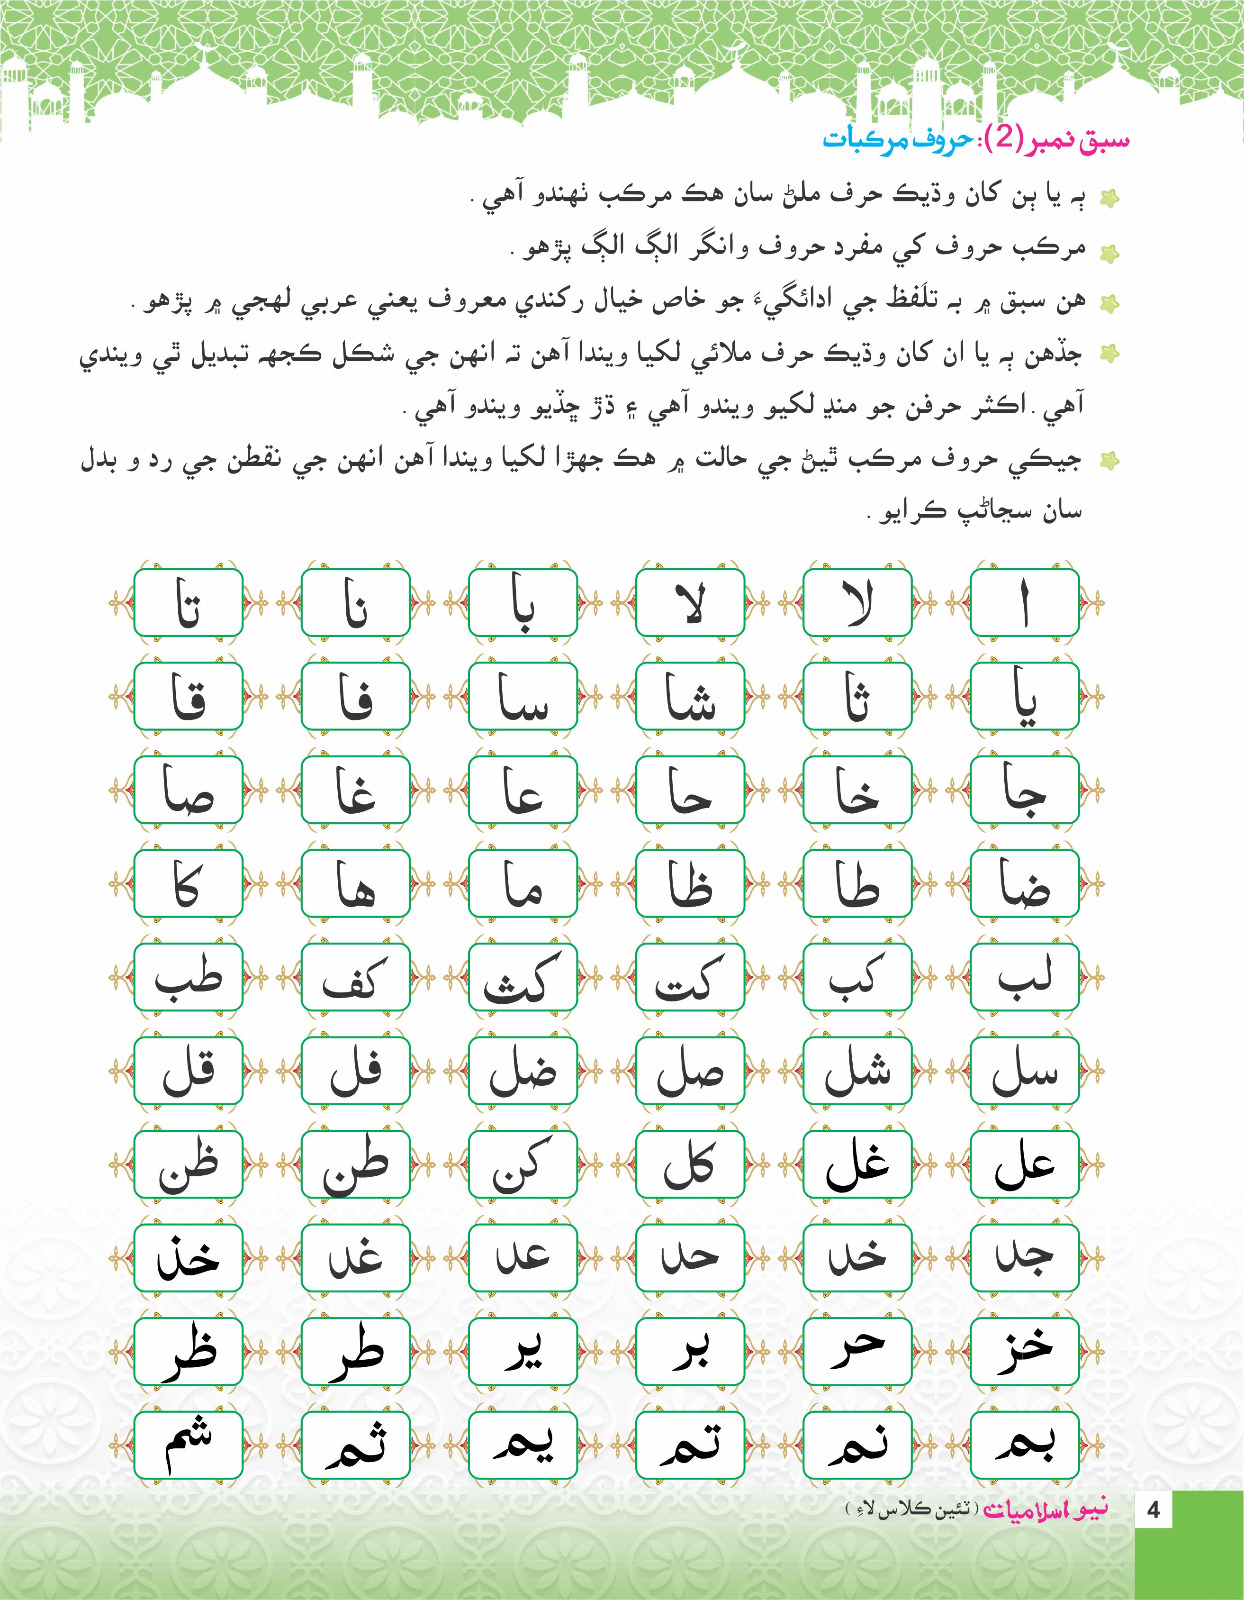 سبق نمبر (2): حروف مرکبات
ٻه يا ٻن کان وڌيڪ حرف ملڻ سان هڪ مرڪب ٺهندو آهي .
مرڪب حروف کي مفرد حروف وانگر الڳ الڳ پڙهو .
هن سبق ۾ به تلَفظ جي ادائگيءَ جو خاص خيال رکندي معروف يعني عربي لهجي ۾ پڙهو .
جڏهن ٻه يا ان کان وڌيڪ حرف ملائي لکيا ويندا آهن ته انهن جي شڪل ڪجهه تبديل ٿي ويندي
آهي . اڪثر حرفن جو منڍ لکيو ويندو آهي ۽ ڌڙ ڇڏيو ويندو آهي .
جيڪي حروف مرڪب ٿيڻ جي حالت ۾ هڪ جهڙا لکيا ويندا آهن انهن جي نقطن جي رد و بدل
سان سڃاڻپ ڪرايو .
ا لا لا با نا تا
يا ثا شا سا فا قا
جا خا حا عا غا صا
ضا طا ظا ما ها كا
لب كب كت كث كف طب
سل شل صل ضل فل قل
عل غل كل كن طن ظن
جد خد حد عد غد خذ
خز حر بر ير طر ظر
بم نم تم يم ثم شم
نيو اسلاميات ( ٽئين ڪلاس لاءِ ) 4